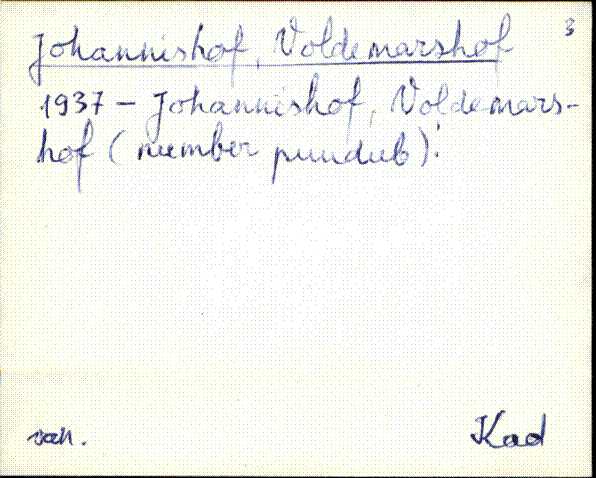 Johannishof, Voldemarshof 3
1937 – Johannishof, Voldemars-
hof (number puudub).
van. Kad